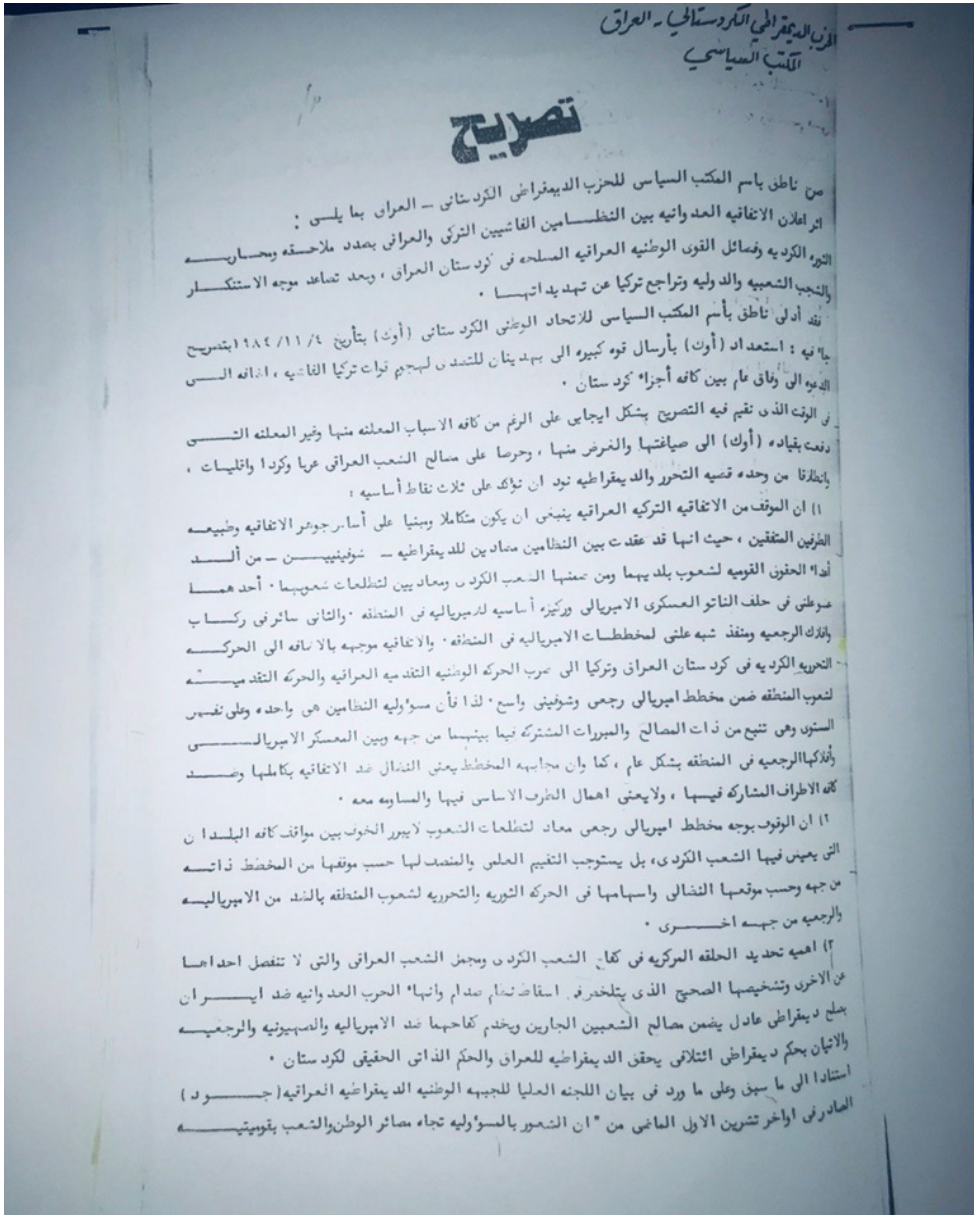 الحزب الديمقراطي الكردستاني - العراق
المكتب السياسي
تصريح
من ناطق باسم المكتب السياسى للحزب الديمقراطى الكردستانى – العراق بما يلسى :
اثر اعلان الاتفاقيه العدوانيه بين النظامين الفاشيين التركى والعراقى بصدد ملاحقه ومحاربه
الثوره الكرديه وفصائل القوى الوطنيه العراقيه المسلحه فى كردستان العراق ، وبعد تصاعد موجه الاستنكار
والشجب الشعبيه والدوليه وتراجع تركيا عن تهديداتها ٠
فقد أدلى ناطق بأسم المكتب السياسى للاتحاد الوطنى الكردستانى (أوك) بتأريخ ٤/ ١١/ ١٩٨٤ بتصريح
جاء فيه : استعداد (أوك) بأرسال قوه كبيره الى بهدينان للتصدى لهجوم قوات تركيا الفاشيه ، اضافه الى
الدعوه الى وفاق عام بين كافه أجزاء كردستان ٠
فى الوقت الذى نقيم فيه التصريح بشكل ايجابى على الرغم من كافه الاسباب المعلنه منها وغير المعلنه التى
دفعت بقياده (أوك) الى صياغتها والغرض منها ، وحرصا على مصالح الشعب العراقى عربا وكردا واقليات ،
وانطلاقا من وحده قضيه التحرر والديمقراطيه نود ان نؤكد على ثلاث نقاط أساسيه :
١) ان الموقف من الاتفاقيه التركيه العراقيه ينبغى ان يكون متكاملا ومبنيا على أساس جوهر الاتفاقيه وطبيعه
الطرفين المتفقين ، حيث انها قد عقدت بين النظامين معادين للديمقراطيه – شوفينيين – من ألد
أعداء الحقوق القوميه لشعوب بلديهما ومن ضمنها الشعب الكردى ومعاديين لتطلعات شعوبهما ٠ أحدهما
عضو علنى فى حلف الناتو العسكرى الامبريالى وركيزه أساسيه للامبرياليه فى المنطقه ٠ والثانى سائر فى ركاب
وافلاك الرجعيه ومنفذ شبه علنى لمخططات الامبرياليه فى المنطقه ٠ والاتفاقيه موجهه بالاضافه الى الحركه
التحرريه الكرديه فى كردستان العراق وتركيا الى ضرب الحركه الوطنيه التقدميه العراقيه والحركه التقدميه
لشعوب المنطقه ضمن مخطط امبريالى رجعى وشوفينى واسع ٠ لذا فأن مسؤوليه النظامين هى واحده وعلى نفس
المستوى وهى تنبع من ذات المصالح والمبررات المشتركه فيما بينهما من جهه وبين المعسكر الامبريالى
وأفلاكها الرجعيه فى المنطقه بشكل عام ، كما وان مجابهه المخطط يعنى النضال ضد الاتفاقيه بكاملها وضد
كافه الاطراف المشاركه فيها ، ولايعنى اهمال الطرف الاساسى فيها والمساومه معه ٠
٢) ان الوقوف بوجه مخطط امبريالى رجعى معاد لتطلعات الشعوب لايبرر الخوف بين مواقف كافه البلدان
التى يعيش فيها الشعب الكردى، بل يستوجب التقييم العلمى والمنصف لها حسب موقفها من المخطط ذاته
من جهه وحسب موقعها النضالى واسهامها فى الحركه الثوريه والتحرريه لشعوب المنطقه بالضد من الامبرياليه
والرجعيه من جهه اخرى ٠
٣) اهميه تحديد الحلقه المركزيه فى كفاح الشعب الكردى ومجمل الشعب العراقى والتى لا تنفصل احداهما
عن الاخرى وتشخيصها الصحيح الذى يتلخص فى اسقاط نظام صدام وانهاء الحرب العدوانيه ضد ايران
بصلح ديمقراطى عادل يضمن مصالح الشعبين الجارين ويخدم كفاحهما ضد الامبرياليه والصهيونيه والرجعيه
والاتيان بحكم ديمقراطى ائتلافى يحقق الديمقراطيه للعراق والحكم الذاتى الحقيقى لكردستان ٠
استنادا الى ما سبق وعلى ما ورد فى بيان اللجنه العليا للجبهه الوطنيه الديمقراطيه العراقيه (جود)
الصادر فى اواخر تشرين الاول الماضى من " ان الشعور بالمسؤوليه تجاه مصائر الوطن والشعب بقوميتيه
١